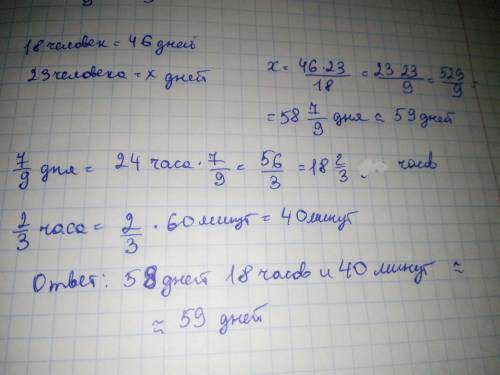 18 человек = 46 дней
23 человека = x дней
x = 46·23/18 = 23·23/9 = 529/9 =
= 58 7/9 дня ≈ 59 дней
7/9 дня = 24 часа · 7/9 = 56/3 = 18 2/3 часов
2/3 часа = 2/3 · 60 минут = 40 минут
Ответ: 58 дней 18 часов и 40 минут ≈
≈ 59 дней